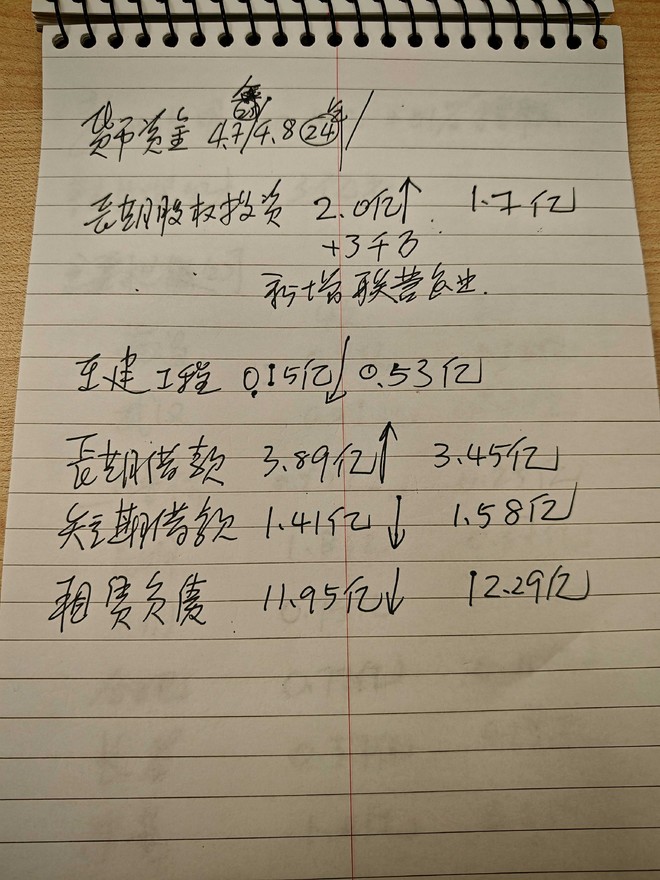 货币资金 4.7/4.8 24年/
长期股权投资 2.0亿↑ 1.7亿
+3千万
新增联营企业.
在建工程 0.15亿↓ 0.53亿
长期借款 3.89亿↑ 3.45亿
短期借款 1.41亿↓ 1.58亿
租赁负债 11.95亿↓ 12.29亿